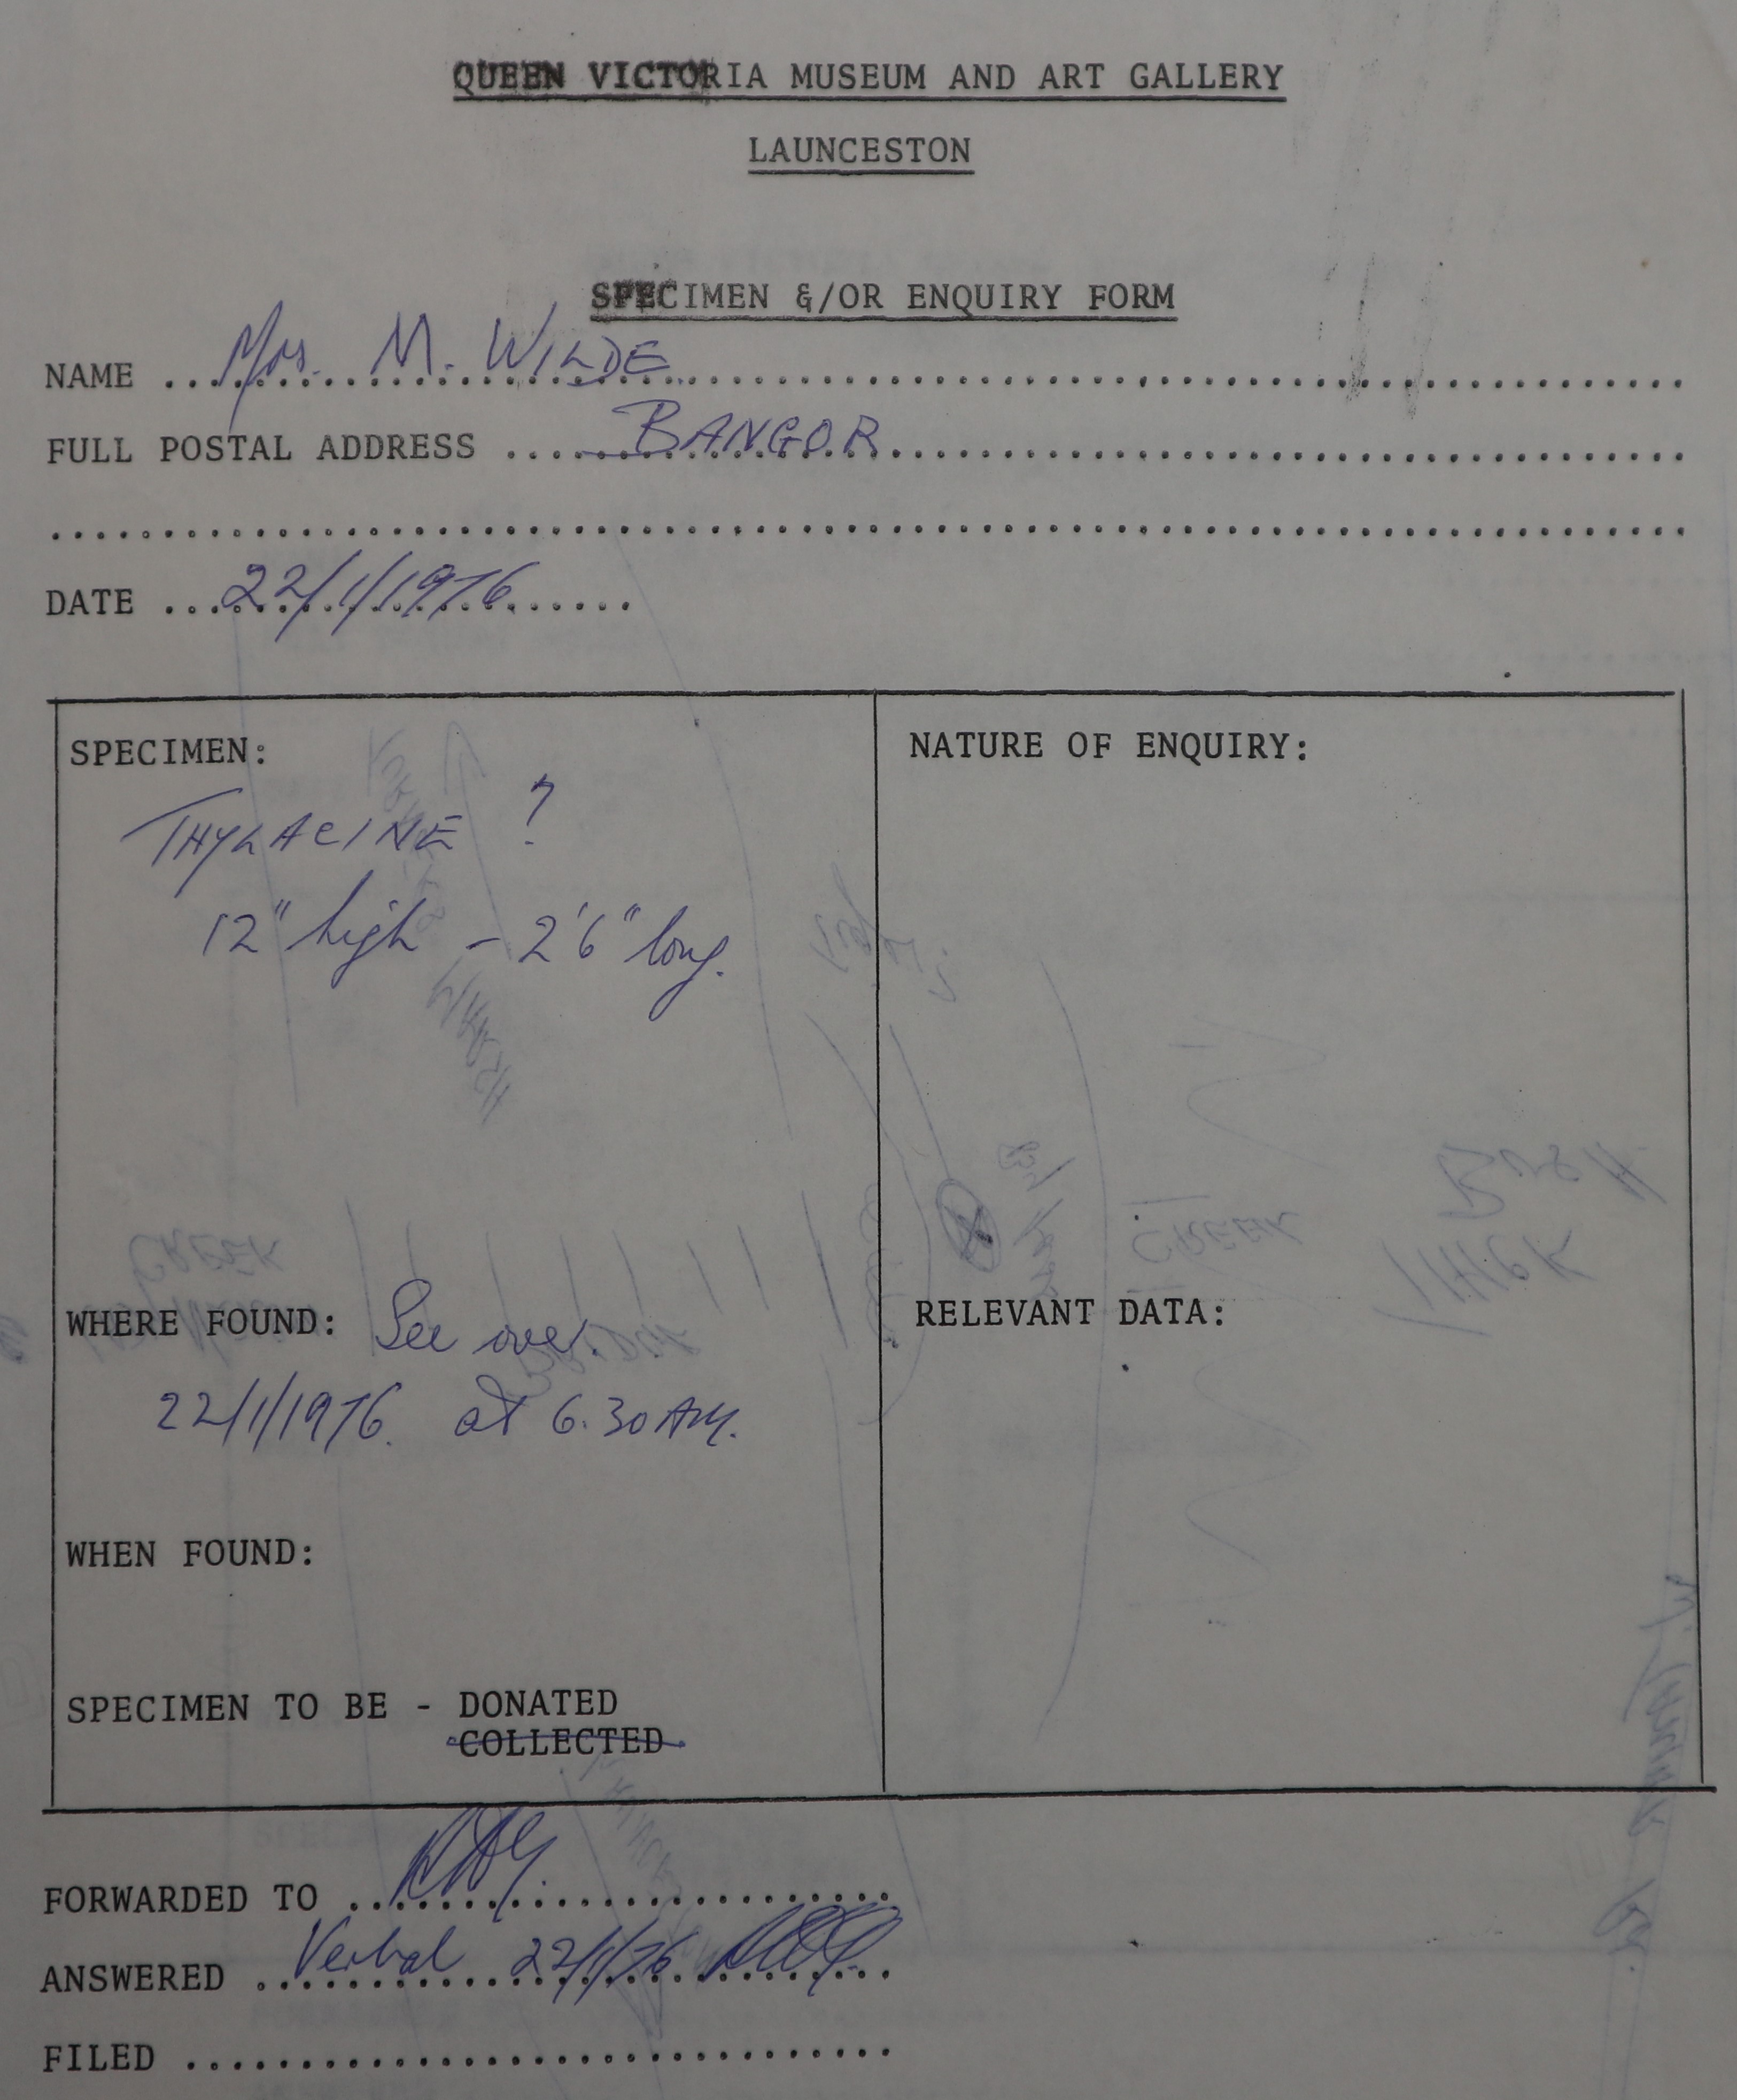 QUEEN VICTORIA MUSEUM AND ART GALLERY
LAUNCESTON
SPECIMEN &/OR ENQUIRY FORM
NAME ... Mrs. M. WILDE
FULL POSTAL ADDRESS ... BANGOR
DATE ... 22/1/1976
SPECIMEN:
THYLACINE ?
12" high - 2'6" long.
WHERE FOUND: See over.
22/1/1976. at 6.30 AM.
WHEN FOUND:
SPECIMEN TO BE - DONATED
COLLECTED
NATURE OF ENQUIRY:
RELEVANT DATA:
FORWARDED TO
ANSWERED Verbal 22/1/76
FILED
CREEK
CREEK
THICK
BUSH